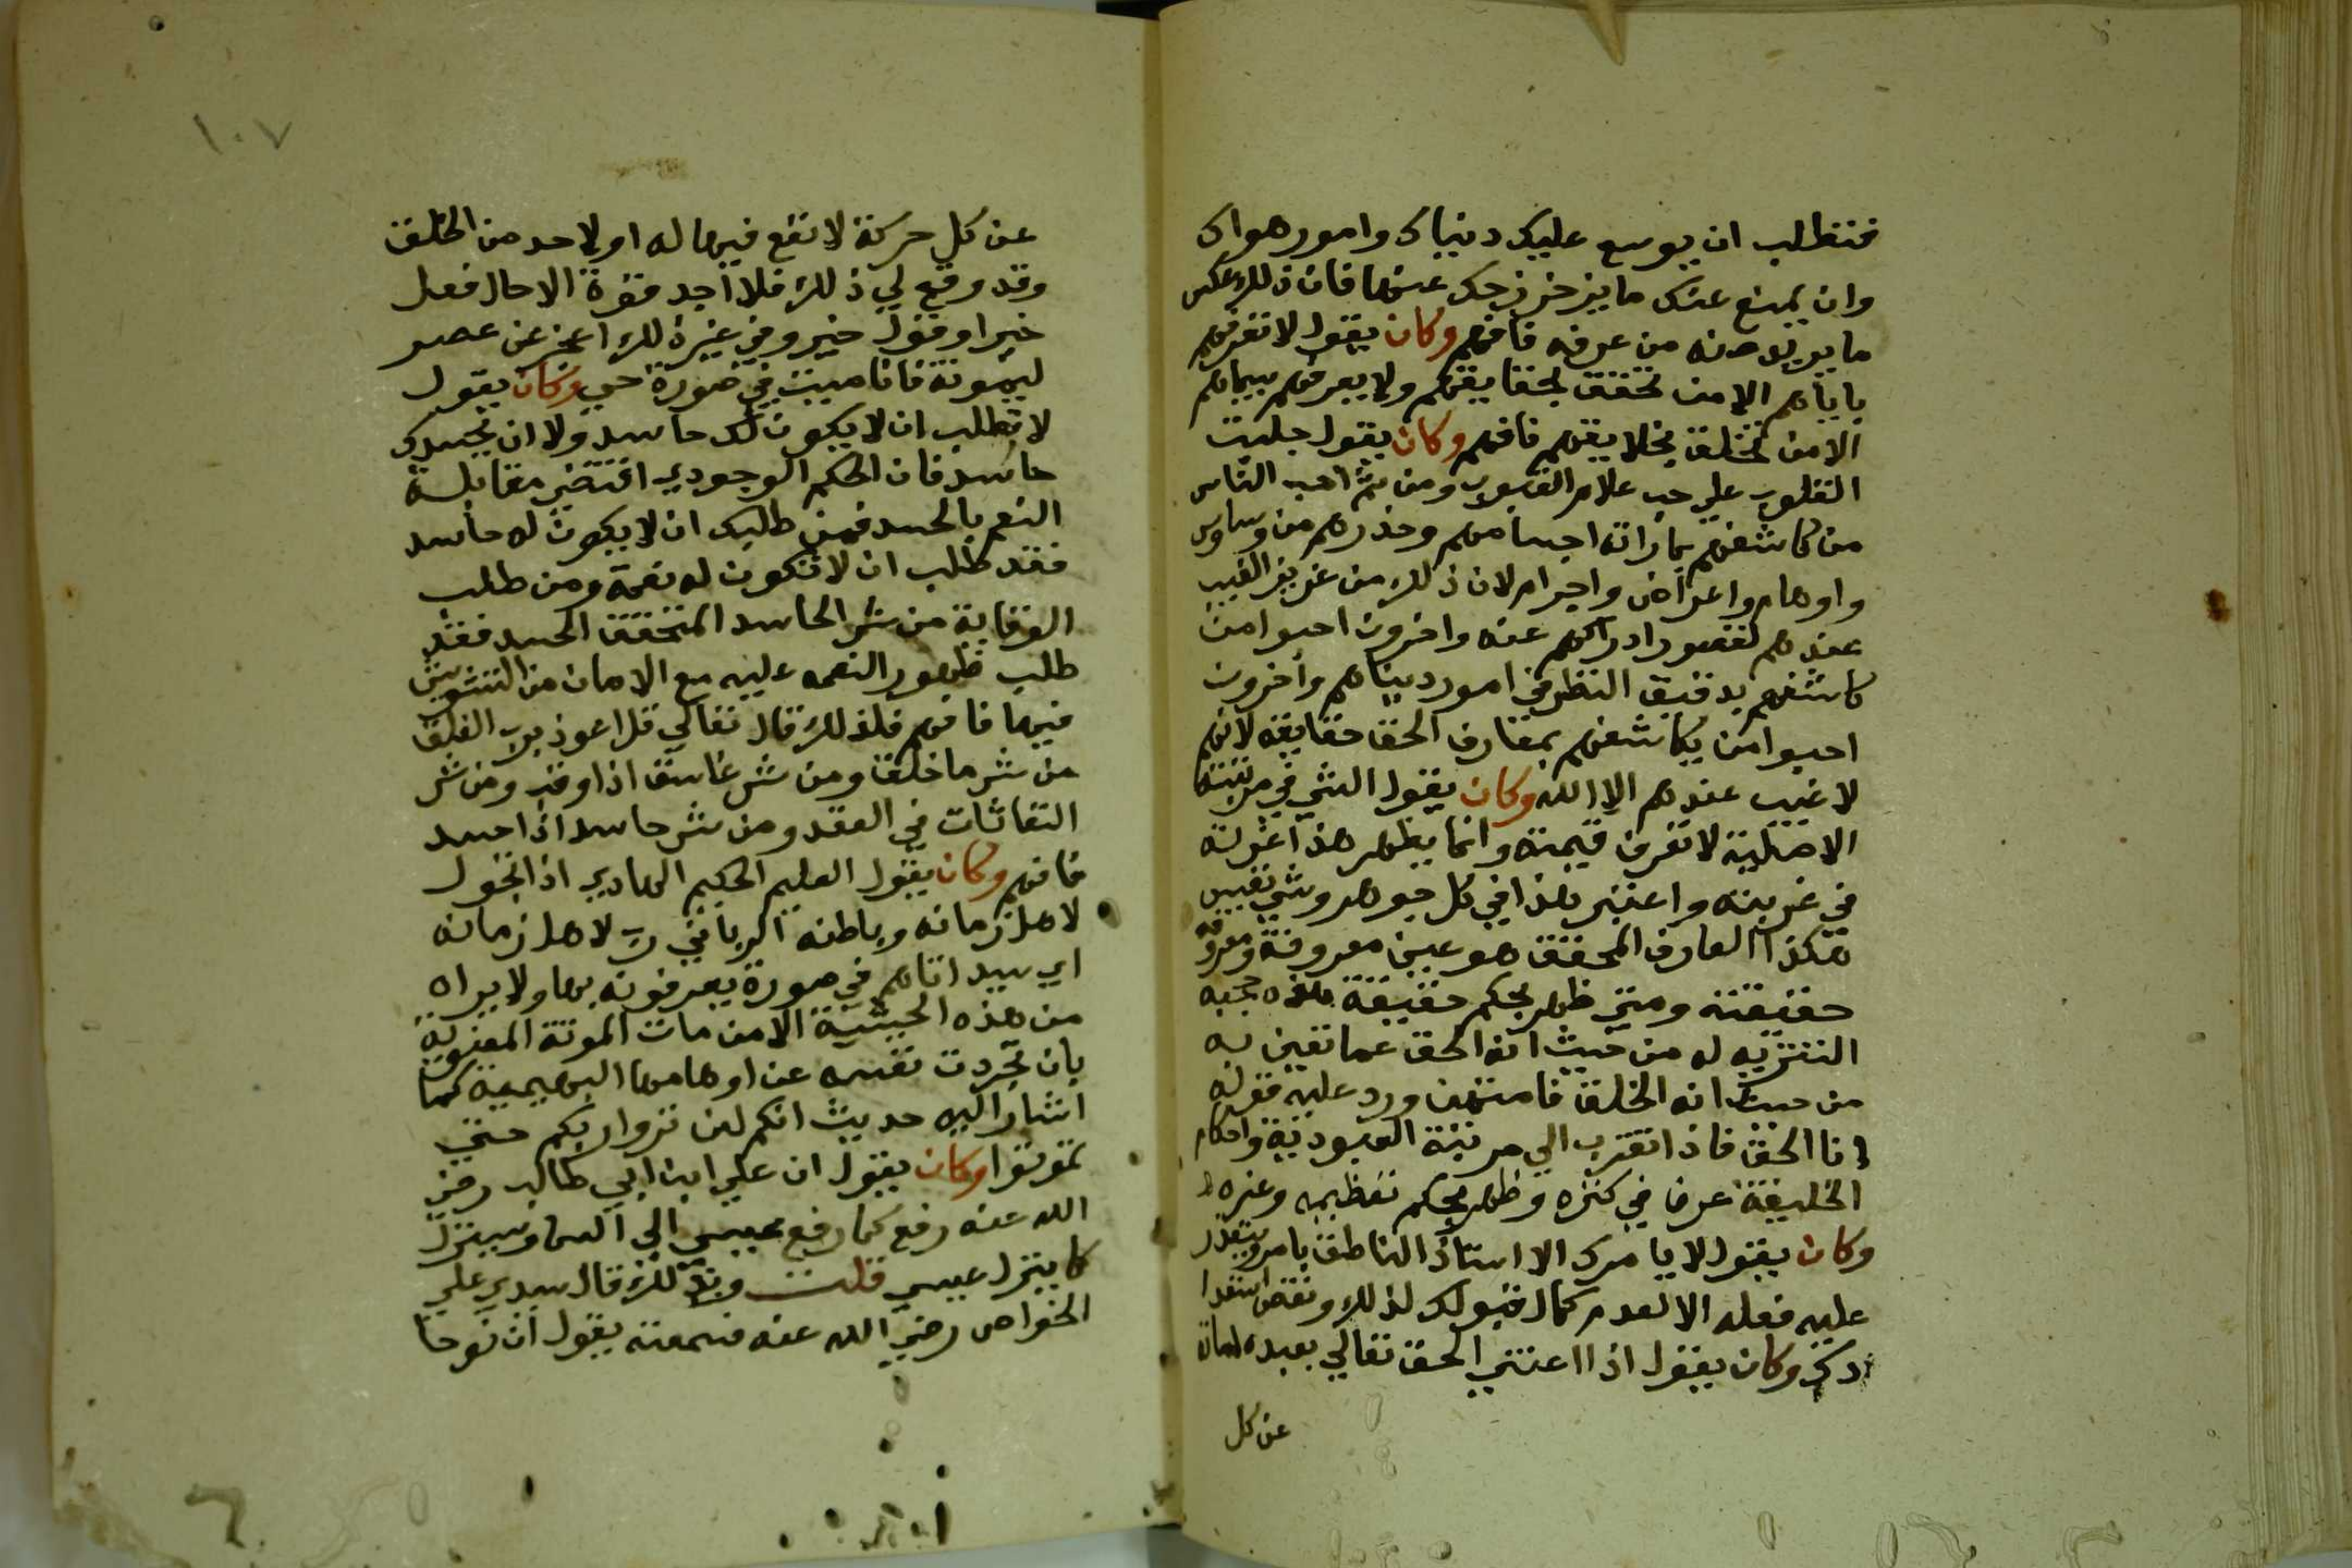 فتطلب ان يوسع عليك دنياك وامور هواك
وان يمنع عنك ما يزحزحك عنها فان ذلك عكس
ما يريد منه من عرفه فافهم وكان يقول لا تعرفهم
باياهم الا من تحقق بحقايقهم ولا يعرفهم بسيماهم
الا من تخلق بخلايقهم فافهم وكان يقول جبلت
القلوب علي حب علام الغيوب ومن ثم احب الناس
من كاشفهم بمارأته اجسامهم وحذرهم من وساوس
واوهام واعراض واجرام لان ذلك من عزيز الغيب
عندهم لقصور ادراكهم عنه واخرون احبوا من
كاشفهم بدقيق النظر في امور دنياهم وآخرون
احبوا من يكاشفهم بمعارف الحق حقايقه لانهم
لا غيب عندهم الا الله وكان يقول الشي في مرتبته
الاصلية لا تعرف قيمته وانما يظهر هذا عزلته
في غربته واعتبر هذا في كل جوهر وشي نفيس
هكذا العارف المحقق هو عين معروفة ومعرفة
حقيقته ومتي ظهر بحكم حقيقة هذه حجبه
التنزيه له من حيث انه الحق عما تعين به
من حيث انه الخلق فامتهن ورد عليه قوله
انا الحق فاذا تقرب الي مرتبة العبودية واحكام
الخليفة عرف في كنزه وظهر بحكم تعظيمه وعزه
وكان يقول لا يامرك الاستاذ الناطق بامر يتعذر
عليك فعله الا لعدم كمال قبولك لذلك ونقص استعدا
دك وكان يقول اذا اعتني الحق تعالي بعبده امات
عن كل
١٠٧
عن كل حركة لا نفع فيها له او لاحد من الخلق
وقد وقع لي ذلك فلا اجد قوة الا حال فعل
خير او قول خير وفي غير ذلك اعجز عن عصر
ليمونة فانا ميت في صورة حي وكان يقول
لا تطلب ان لا يكون لك حاسد ولا ان يحسدك
حاسد فان الحكم الوجودي اقتضي مقابلة
النعم بالحسد فمن طلب ان لا يكون له حاسد
فقد طلب ان لا تكون له نعمة ومن طلب
الوقاية من شر الحاسد المتحقق الحسد فقد
طلب ظهور النعمه عليه مع الامان من التشويش
فيها فافهم فلذلك قال تعالي قل اعوذ برب الفلق
من شر ما خلق ومن شر غاسق اذا وقب ومن شر
النفاثات في العقد ومن شر حاسد اذا حسد
فافهم وكان يقول العليم الحكيم الهادي اذا تحول
لاهل زمانه وباطنه الرباني رب لاهل زمانه
اي سيد اتاهم في صورة يعرفونه بها ولا يراه
من هذه الحيثية الا من مات الموتة المعنوية
بان تجردت نفسه عن اوهامها البهيمية كما
اشار اليه حديث انكم لن تروا ربكم حتي
تموتوا وكان يقول ان علي ابن ابي طالب رضي
الله عنه رفع كما رفع عيسي الي السما وسينزل
كما ينزل عيسي قلت وبذلك قال سيدي علي
الخواص رضي الله عنه فسمعته يقول ان نوحا